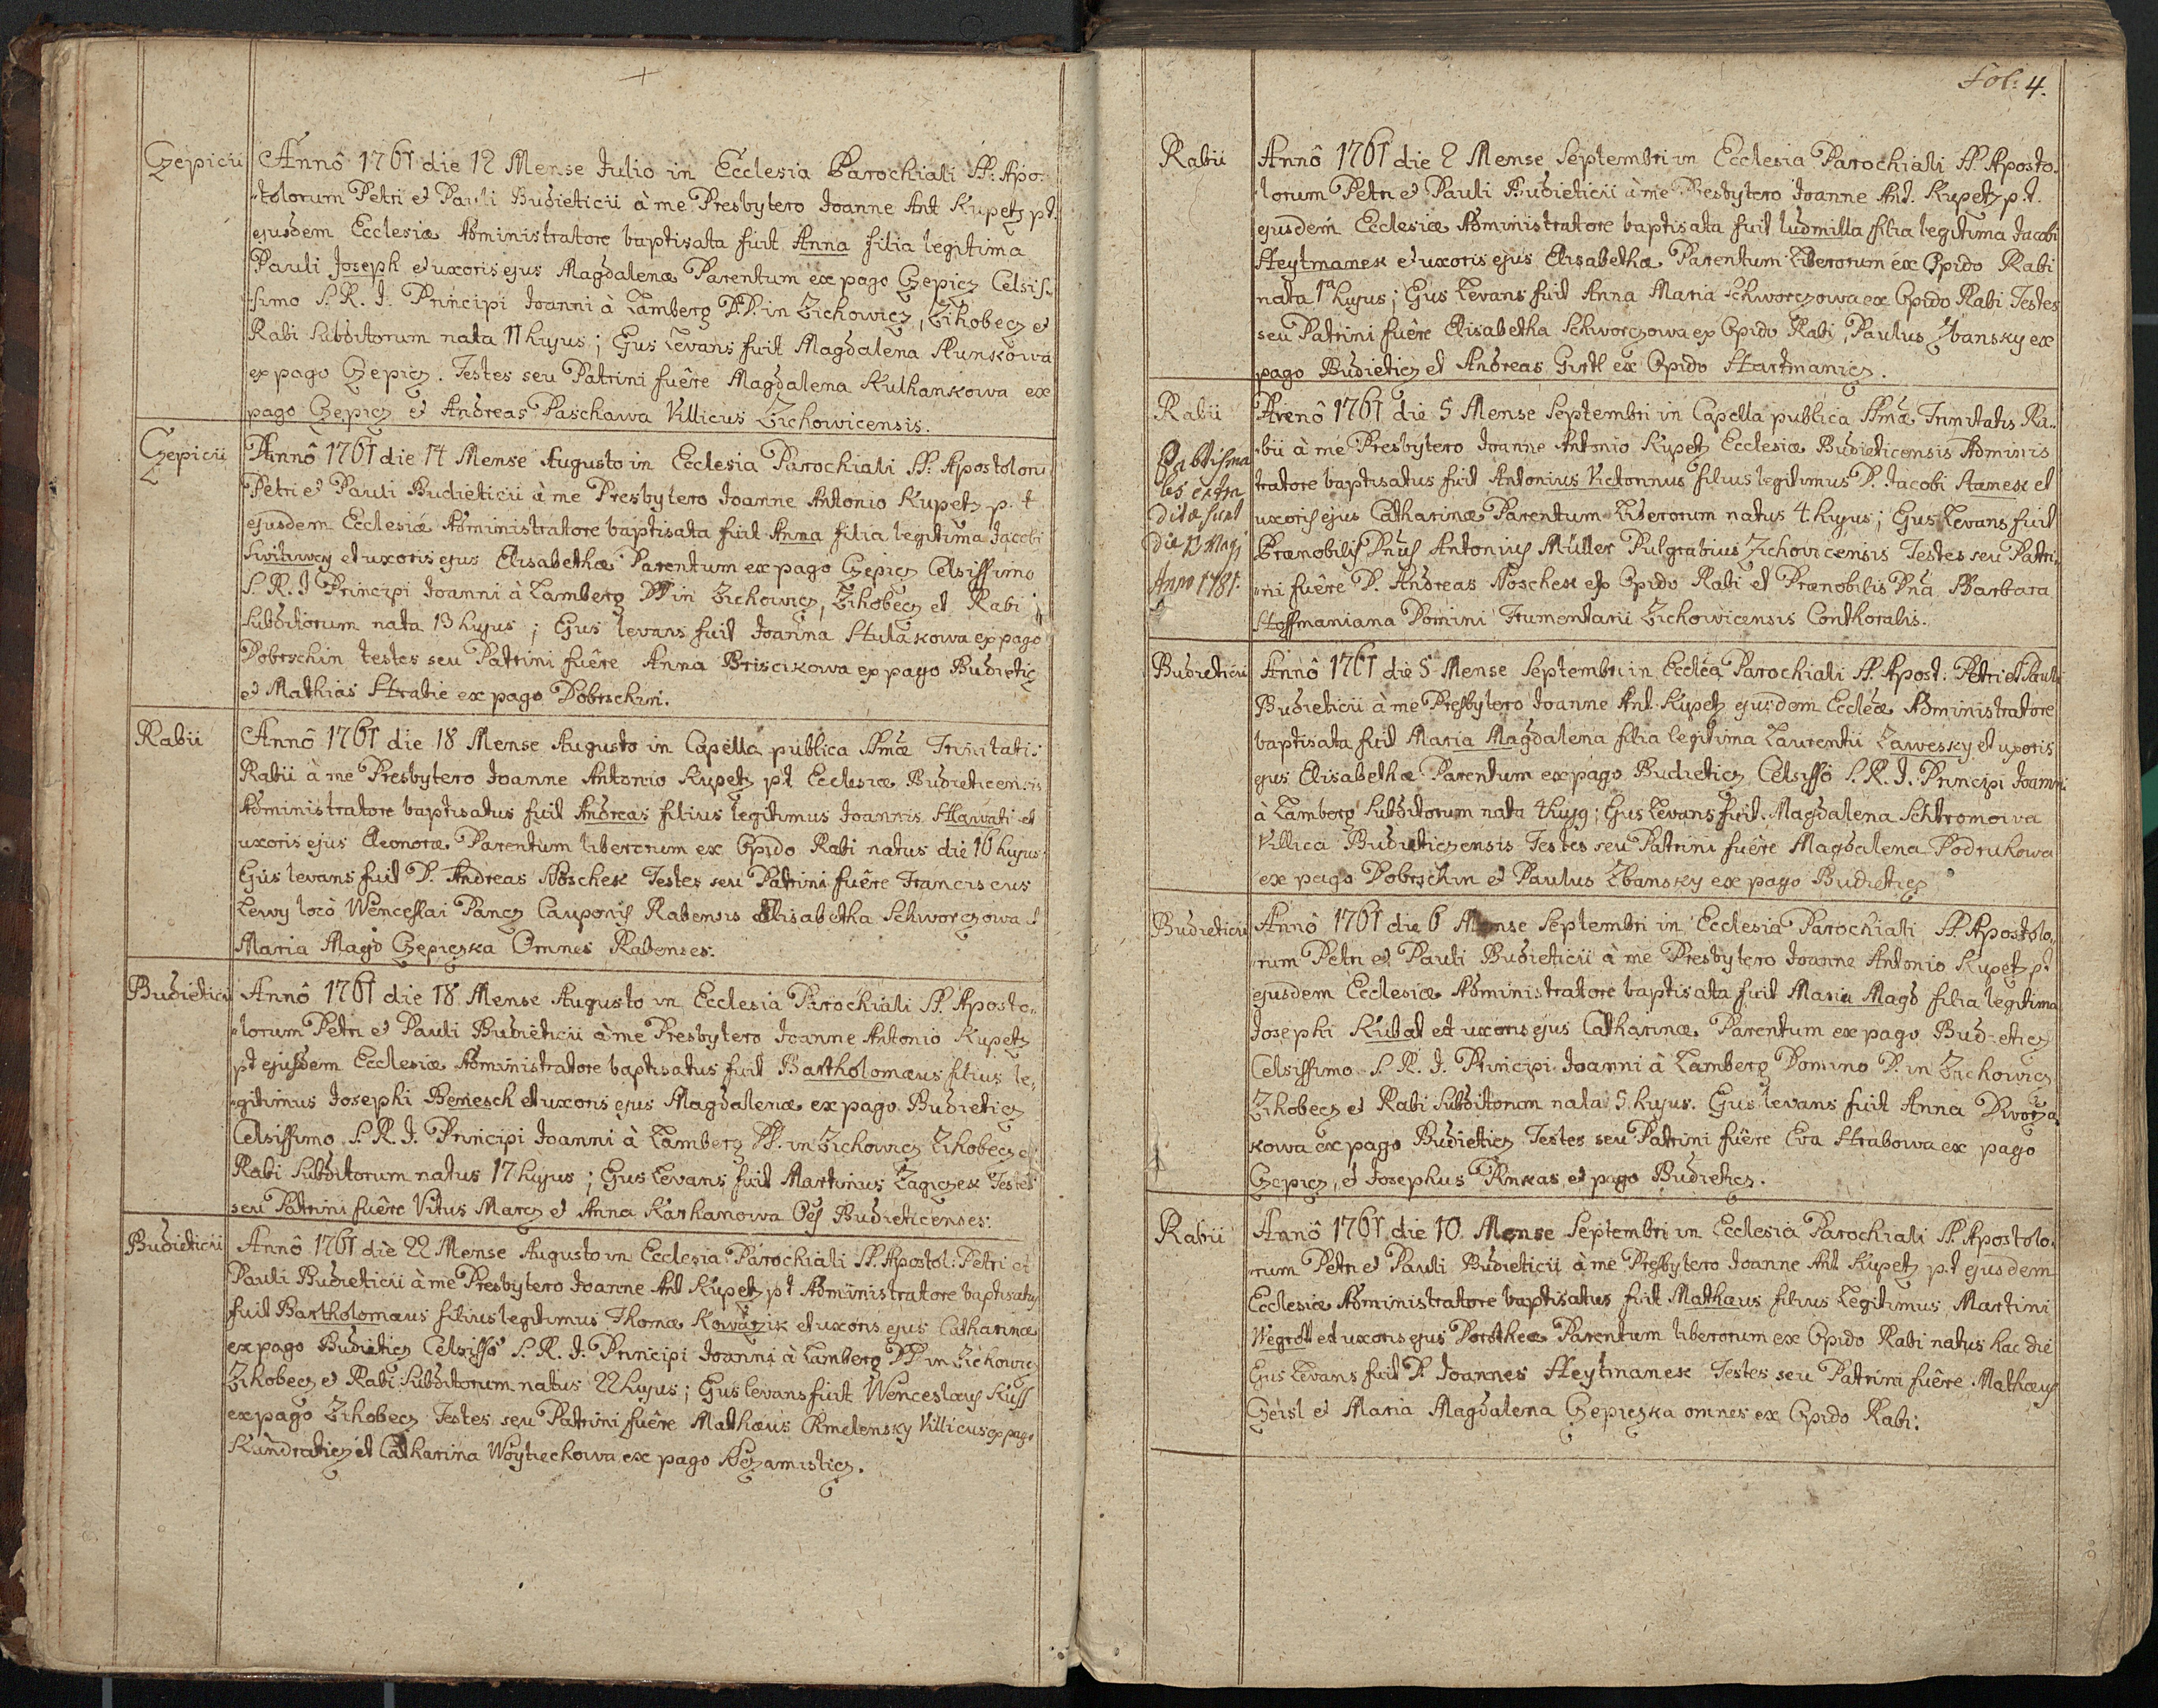 Czepicii
Annô 1761 die 12 Mense Julio in Ecclesia Parochiali SS: Apo-
stolorum Petri et Pauli Budieticii à me Presbytero Joanne Ant Kupetz p.t.
ejusdem Ecclesiæ Administratore baptisata fuit Anna filia legitima
Pauli Joseph et uxoris ejus Magdalenæ Parentum ex pago Czepicz Celsis-
simo S. R. J. Principi Joanni à Lamberg DD. in Zichowicz, Zihobecz et
Rabi Subditorum nata 11 hujus; Ejus Levans fuit Magdalena Slunskowa
ex pago Czepicz. Testes seu Patrini fuêre Magdalena Kulhankowa ex
pago Czepicz et Andreas Paschawa Villicus Zichowicensis.
Czepicii
Annô 1761 die 14 Mense Augusto in Ecclesia Parochiali SS: Apostoloru
Petri et Pauli Budieticii à me Presbytero Joanne Antonio Kupetz p. t
ejusdem Ecclesiæ Administratore baptisata fuit Anna filia legitima Jacobi
et uxoris ejus Elisabethæ Parentum ex pago Czepicz Celsissimo
S. R. J Principi Joanni à Lamberg DD in Zichowicz, Zihobecz et Rabi
Subditorum nata 13 hujus; Ejus levans fuit Joanna Stulakowa ex pago
Dobrschin testes seu Patrini fuêre Anna Briscikowa ex pago Budietic
et Mathias Hrabie ex pago Dobrschin.
Rabii
Annô 1761 die 18 Mense Augusto in Capella publica SSmæ Trinitatis
Rabii à me Presbytero Joanne Antonio Kupetz p.t Ecclesiæ Budieticensis
Administratore baptisatus fuit Andreas filius legitimus Joannis Hawati et
uxoris ejus Eleonoræ Parentum liberorum ex Opido Rabi natus die 16 hujus.
Ejus levans fuit D. Andreas Noschek Testes seu Patrini fuêre Franciscus
Lewy locô Wenceslai Pancz Cauponis Rabensis Elisabetha Schworczowa et
Maria Magd Czepiczka Omnes Rabenses.
Budieticii
Annô 1761 die 18 Mense Augusto in Ecclesia Parochiali SS. Aposto-
lorum Petri et Pauli Budieticii à me Presbytero Joanne Antonio Kupetz
pt ejusdem Ecclesiæ Administratore baptisatus fuit Bartholomæus filius le-
gitimus Josephi Benesch et uxoris ejus Magdalenæ ex pago Budieticz
Celsissimo S. R. J. Principi Joanni à Lamberg DD. in Zichowicz Zihobecz et
Rabi Subditorum natus 17 hujus; Ejus Levans fuit Martinus Zagiczek Testes
seu Patrini fuêre Vitus Marcz et Anna Karhanowa Oes Budieticenses.
Budieticii
Annô 1761 die 22 Mense Augusto in Ecclesia Parochiali SS. Apostol: Petri et
Pauli Budieticii à me Presbytero Joanne Ant Kupetz pt Administratore baptisatus
fuit Bartholomæus filius legitimus Thomæ Kowarzik et uxoris ejus Catharinæ
ex pago Budieticz Celsissô S. R. J. Principi Joanni à Lamberg DD in Zichowicz
Zihobecz et Rabi Subditorum natus 22 hujus; Ejus levans fuit Wenceslaus Kuss
ex pago Zihobecz Testes seu Patrini fuêre Mathæus Chmelensky Villicus ex pago
Kundraticz et Catharina Woytiechowa ex pago Nezamisticz.
Fol: 4.
Rabii
Annô 1761 die 2 Mense Septembri in Ecclesia Parochiali SS. Aposto-
lorum Petri et Pauli Budieticii à me Presbytero Joanne Ant. Kupetz p.t.
ejusdem Ecclesiæ Administratore baptisata fuit Ludmilla filia legitima Jacobi
Heytmanek et uxoris ejus Elisabethæ Parentum Liberorum ex Opido Rabi
nata 1ª hujus; Ejus Levans fuit Anna Maria Schworczowa ex Opido Rabi Testes
seu Patrini fuêre Elisabetha Schworczowa ex Opido Rabi, Paulus Zbansky ex
pago Budieticz et Andreas Girtl ex Opido Hartmanicz.
Rabii
Babtisma
les extra
ditæ sunt
die 13 Maji
Anno 1781.
Annô 1761 die 5 Mense Septembri in Capella publica SSmæ Trinitatis Ra-
bii à me Presbytero Joanne Antonio Kupetz Ecclesiæ Budieticensis Adminis
tratore baptisatus fuit Antonius Victorinus filius legitimus D. Jacobi Hamek et
uxoris ejus Catharinæ Parentum Liberorum natus 4 hujus; Ejus Levans fuit
Prænobilis Dnus Antonius Müller Pulgrabius Zichovicensis Testes seu Patri-
ni fuêre D. Andreas Noschek ex Opido Rabi et Prænobilis Dna Barbara
Hoffmaniana Domini Frumentarii Zichowicensis Conthoralis.
Budieticii
Annô 1761 die 5 Mense Septembri in Ecclea Parochiali SS. Apost: Petri et Pauli
Budieticii à me Presbytero Joanne Ant. Kupetz ejusdem Eccleæ Administratore
baptisata fuit Maria Magdalena filia legitima Laurentii Zawesky et uxoris
ejus Elisabethæ Parentum ex pago Budieticz Celsissô S. R. J. Principi Joanni
à Lamberg Subditorum nata 4 hujq; Ejus Levans fuit Magdalena Schtromowa
Villica Budieticzensis Testes seu Patrini fuêre Magdalena Podruhowa
ex pago Dobrschin et Paulus Zbansky ex pago Budieticz
Budieticii
Annô 1761 die 6 Mense Septembri in Ecclesia Parochiali SS. Apostolo-
rum Petri et Pauli Budieticii à me Presbytero Joanne Antonio Kupetz pt
ejusdem Ecclesiæ Administratore baptisata fuit Maria Magd filia legitima
Josephi Kubat et uxoris ejus Catharinæ Parentum ex pago Budieticz
Celsissimo S. R. J. Principi Joanni à Lamberg Domino D. in Zichowicz
Zihobecz et Rabi Subditorum nata 5 hujus. Ejus levans fuit Anna Dworza
kowa ex pago Budieticz Testes seu Patrini fuêre Eva Hrabowa ex pago
Czepicz, et Josephus Pinkas ex pago Budieticz.
Rabii
Annô 1761 die 10 Mense Septembri in Ecclesia Parochiali SS. Apostolo-
rum Petri et Pauli Budieticii à me Presbytero Joanne Ant Kupetz p.t ejusdem
Ecclesiæ Administratore baptisatus fuit Mathæus filius Legitimus Martini
Wegrott et uxoris ejus Dorotheæ Parentum liberorum ex Opido Rabi natus hac die
Ejus Levans fuit D. Joannes Heytmanek Testes seu Patrini fuêre Mathæus
Geisl et Maria Magdalena Czepiczka omnes ex Opido Rabi.